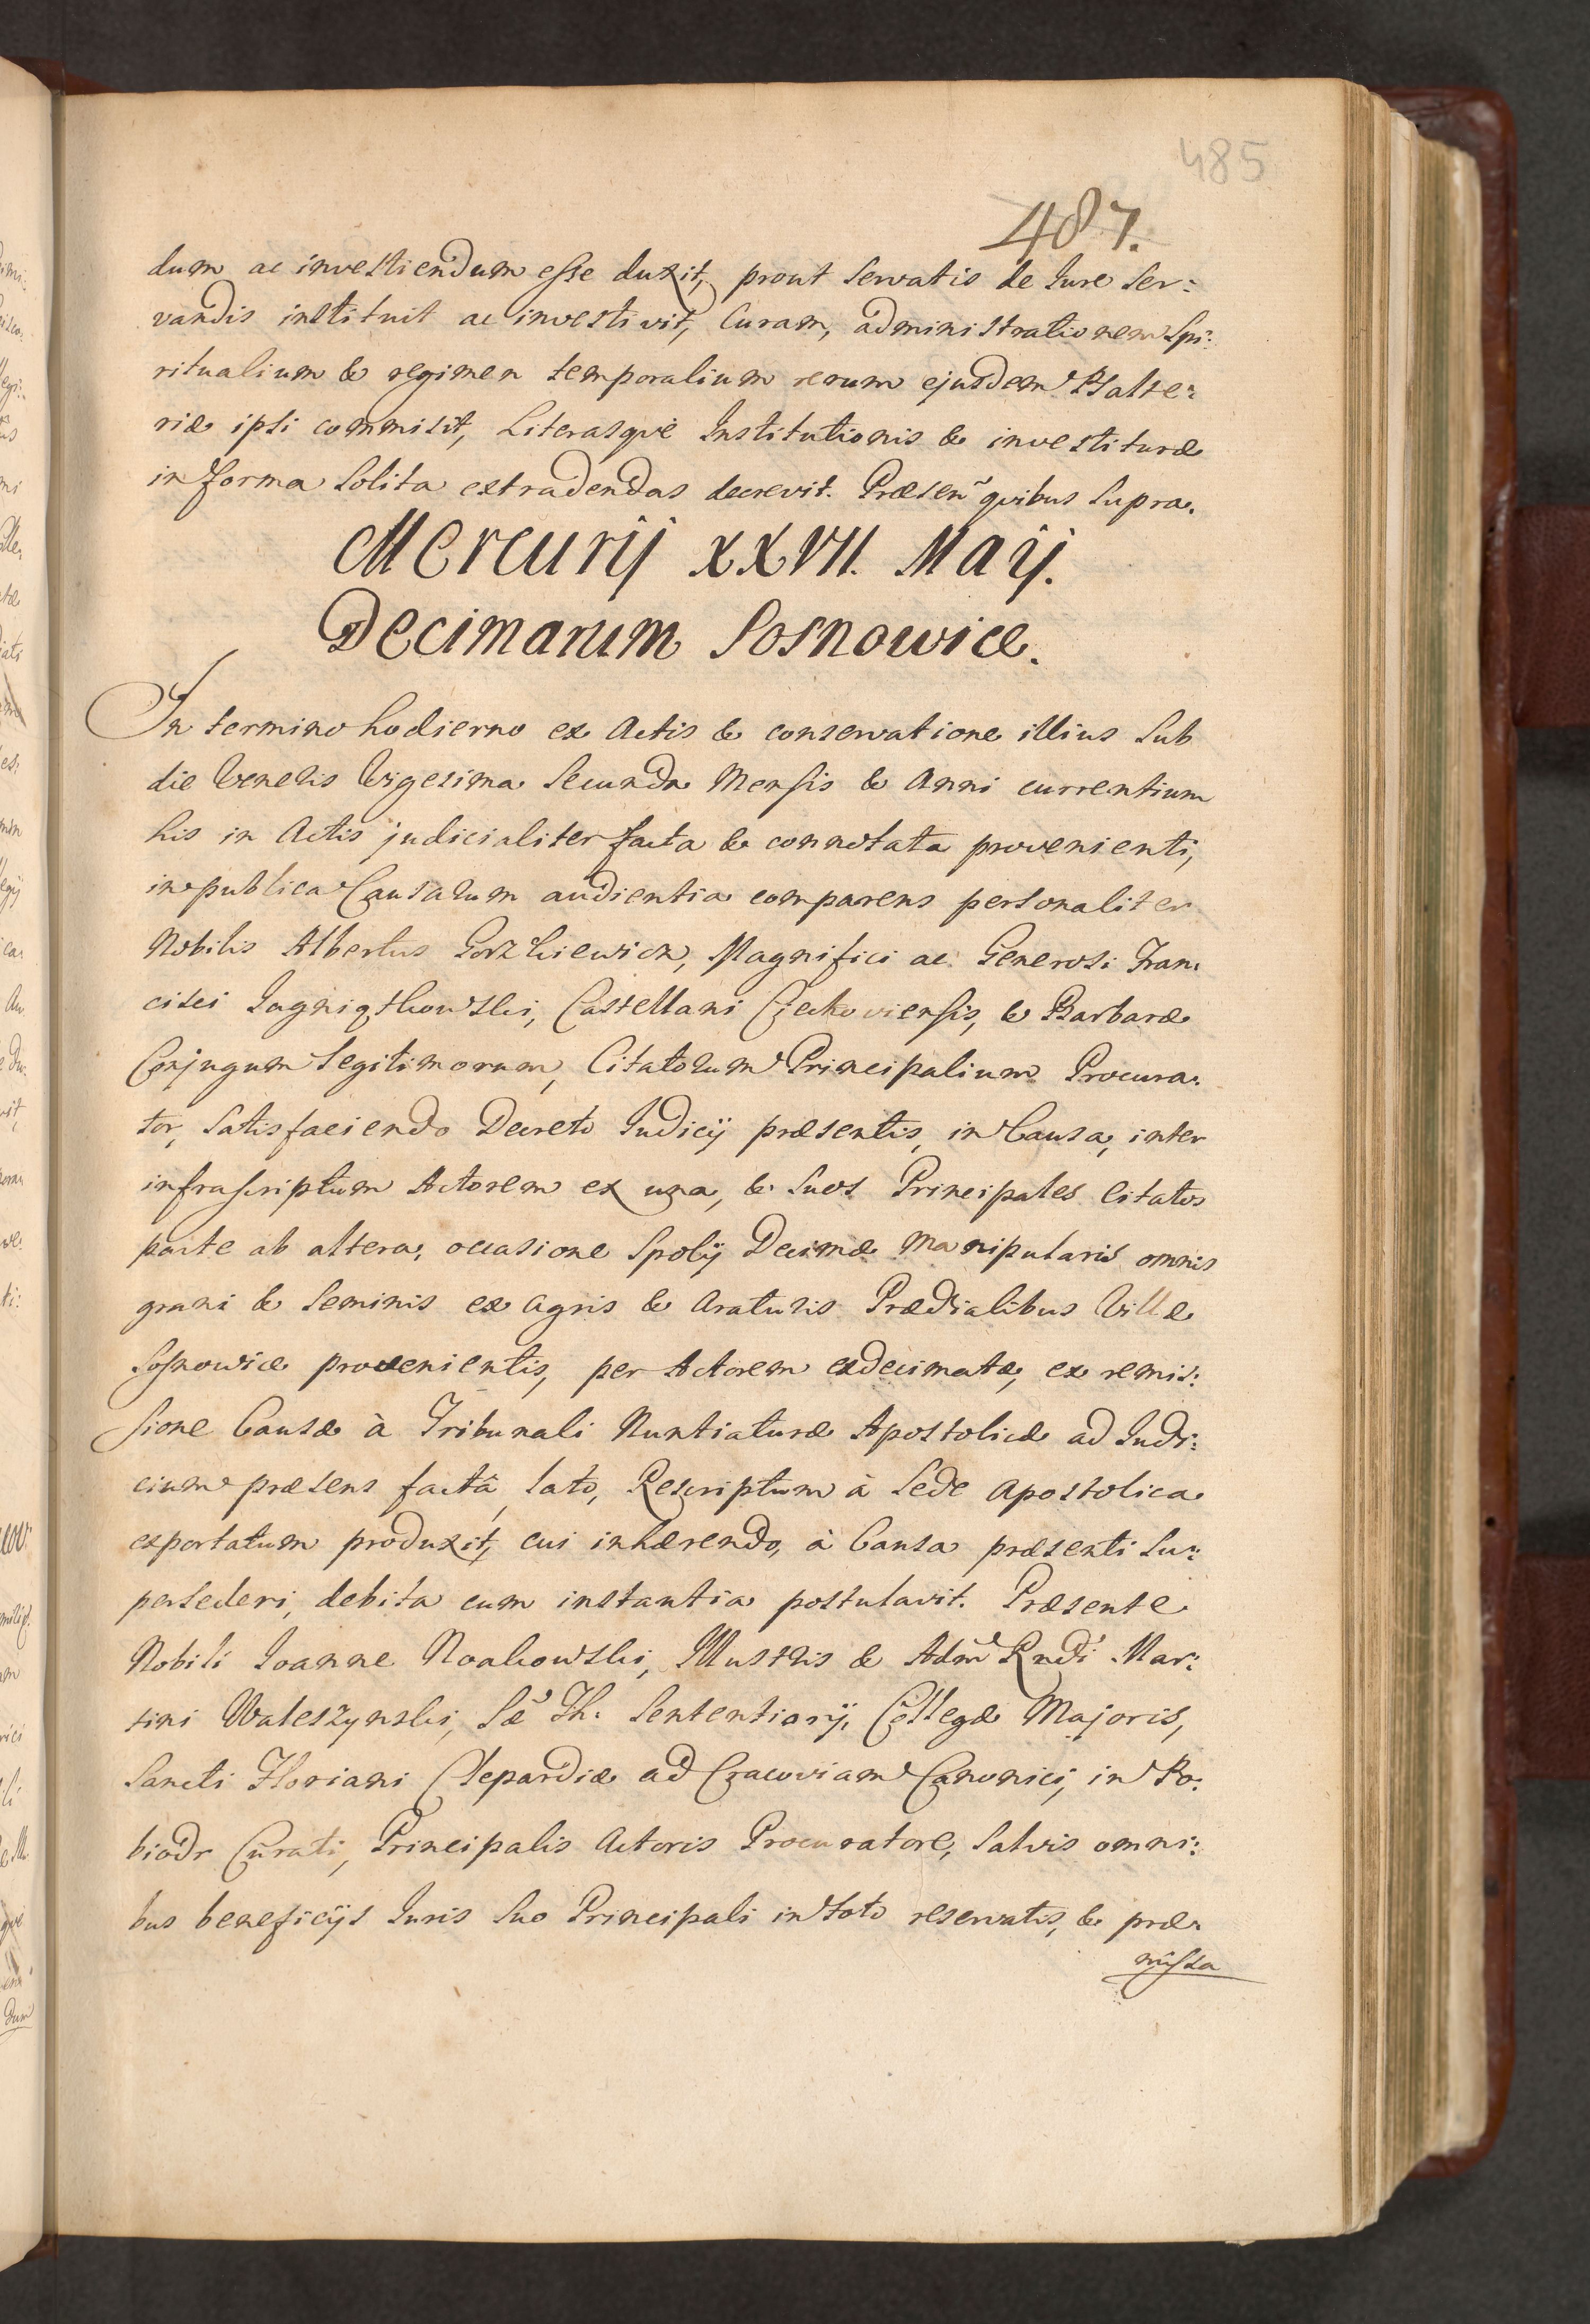 485
487.
dum ac investiendum esse duxit, prout servatis de Jure ser:
vandis instituit ac investivit, Curam, administrationem Spi:
ritualium & regimen temporalium rerum ejusdem Psalte:
riæ ipsi commisit, Literasque Institutionis & investituræ
in forma solita extradendas decrevit. Præsen~ quibus supra.
Mercurij XXVII. Maij.
Decimarum Sosnowice.
In termino hodierno ex Actis & conservatione illius sub
die Veneris Vigesima Secunda Mensis & Anni currentium
his in Actis judicialiter facta & connotata provenienti,
in publica Causarum audientia comparens personaliter
Nobilis Albertus Gorzkiewicz, Magnifici ac Generosi Fran:
cisci Jagniątkowski, Castellani Czechoviensis, & Barbaræ
Conjugum legitimorum, Citatorum Principalium Procura:
tor, satisfaciendo Decreto Judicij præsentis, in Causa, inter
infrascriptum Actorem ex una, & suos Principales citatos
parte ab altera, occasione Spolij Decimæ Manipularis omnis
grani & seminis ex agris & araturis Prædialibus Villæ
Sosnowice provenientis, per Actorem exdecimatæ, ex remis:
sione Causæ à Tribunali Nuntiaturæ Apostolicæ ad Judi:
cium præsens factâ, lato, Rescriptum à Sede Apostolica
exportatum produxit, cui inhærendo, à Causa præsenti su:
persederi, debita cum instantia postulavit. Præsente
Nobili Joanne Noakowski, Illustris & Adm Rndi Mar:
tini Waleszynski, Sæ Th. Sententiarij, Collegæ Majoris,
Sancti Floriani Clepardiæ ad Cracoviam Canonici, in Bo:
biodr Curati, Principalis Actoris Procuratore, salvis omni:
bus beneficijs Juris suo Principali in toto reservatis, & præ:
missa